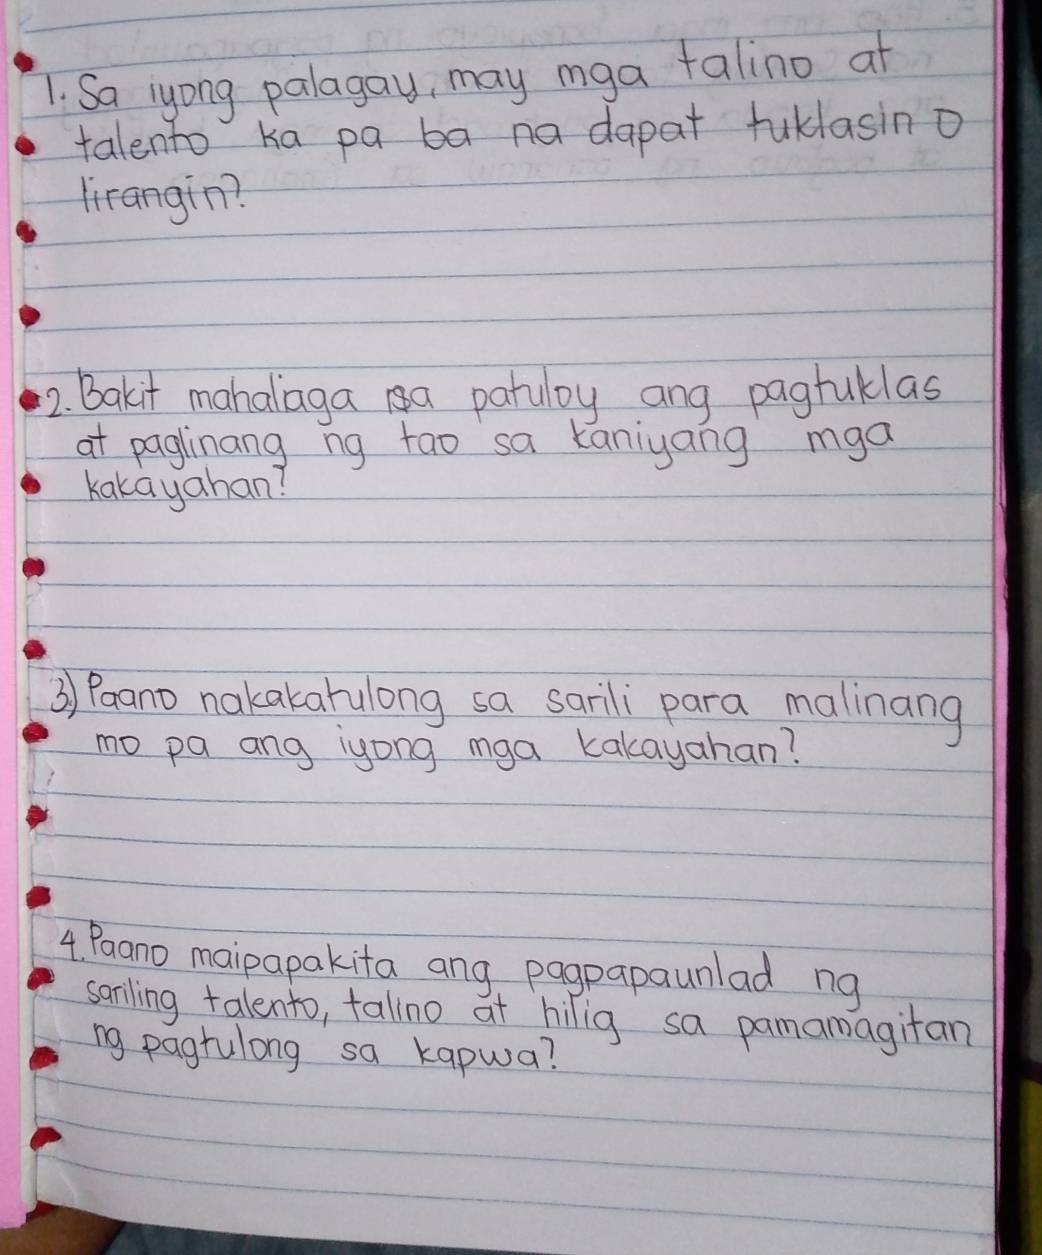 1. Sa iyong palagay, may mga talino at
talento ka pa ba na dapat tuklasin o
lirangin?
2. Bakit mahaliaga sa patuloy ang pagtuklas
at paglinang ng tao sa kaniyang mga
kakayahan?
3) Paano nakakatulong sa sarili para malinang
mo pa ang iyong mga kakayahan?
4. Paano maipapakita ang pagpapaunlad ng
sariling talento, talino at hilig sa pamamagitan
ng pagtulong sa kapwa?